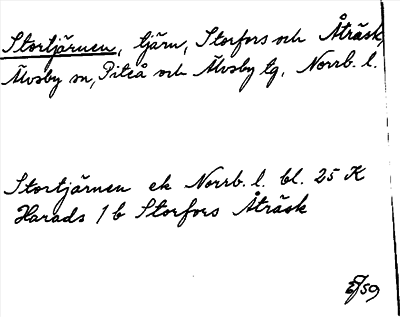 Stortjärnen, tjärn, Storfors och Åträsk,
Älvsby sn, Piteå och Älvsby tg, Norrb. l.
Stortjärnen ek Norrb. l. bl. 25 K
Harads 1 b Storfors Åträsk
/59